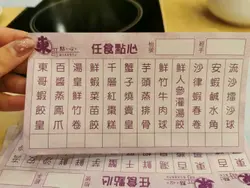 東
任食點心
流沙擂沙球
安蝦鹹水角
沙律蝦春卷
鮮人參灌湯餃
鮮竹牛肉球
芋頭蒸排骨
蟹子燒賣皇
千層紅棗糕
鮮蝦菜苗餃
湯皇鮮竹卷
百醬蒸鳳爪
東哥蝦餃皇
任食點心